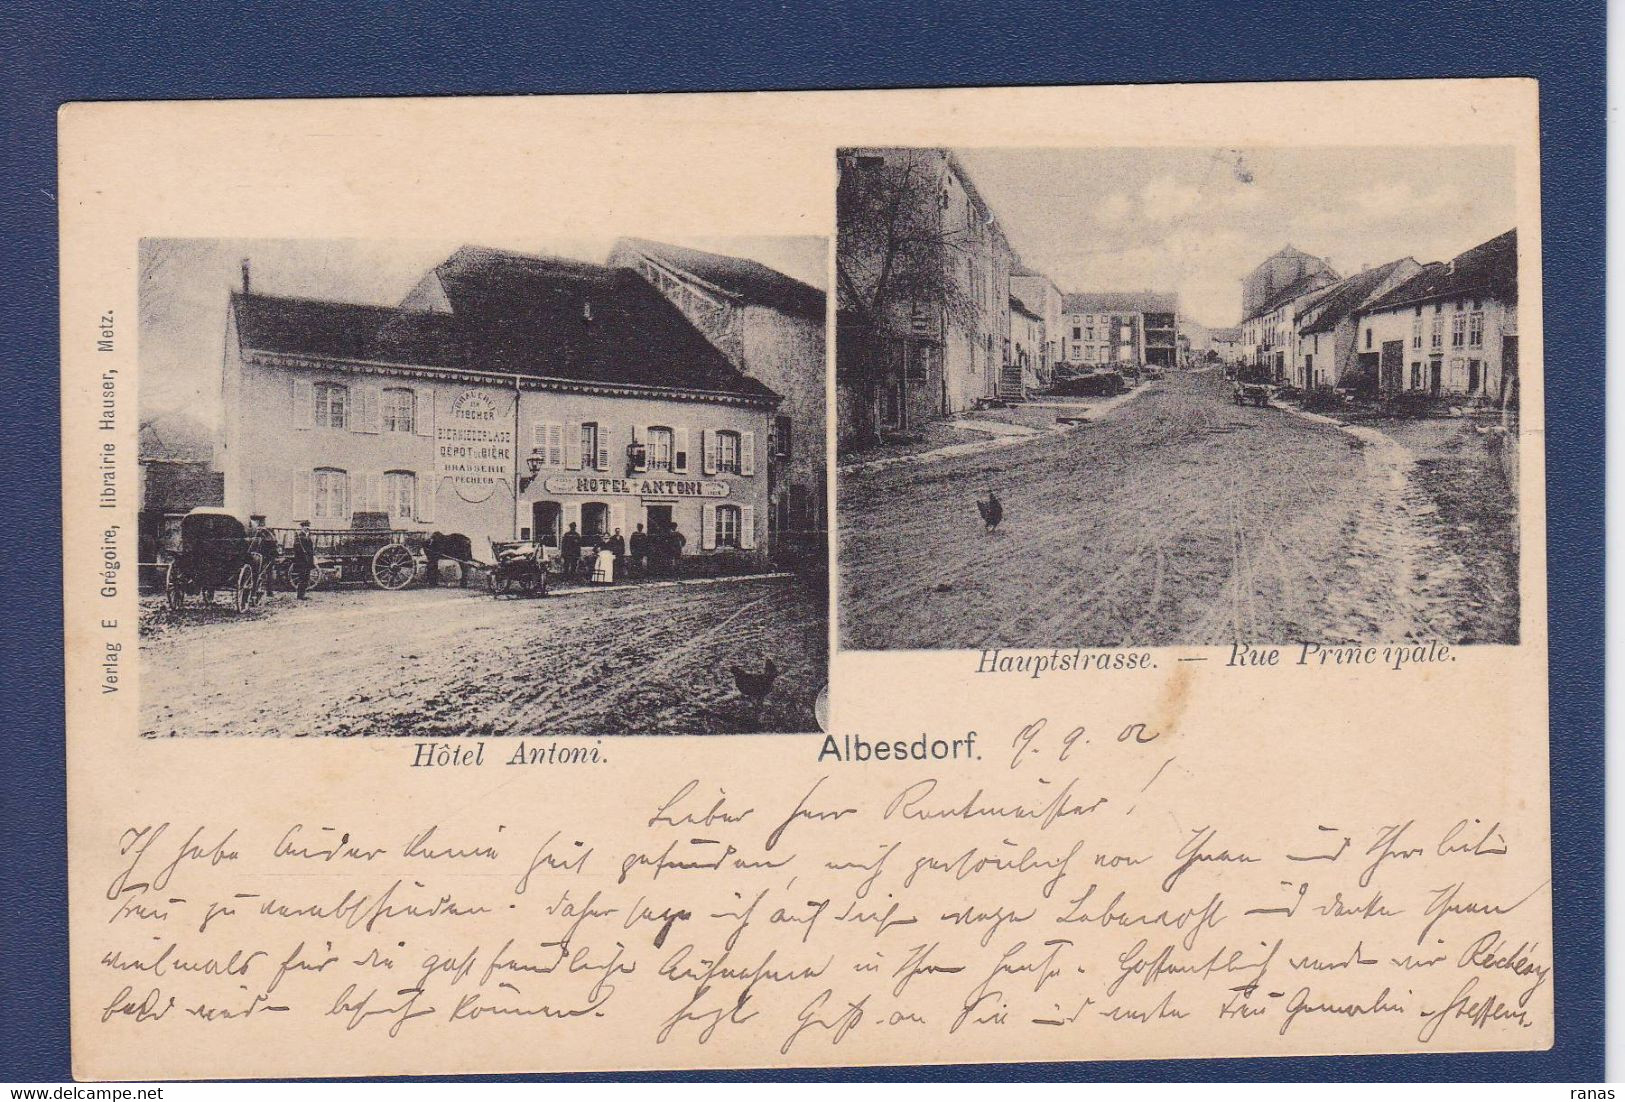 Verlag E Grégoire, librairie Hauser, Metz.
BRAUEREI
ZUM
FISCHER
BIERNIEDERLAGE
DÉPÔT DE BIÈRE
BRASSERIE
PECHEUR
HOTEL ANTONI
Hôtel Antoni.
Hauptstrasse. — Rue Principale.
Albesdorf. 9. 9. 02
Lieber Herr Rentmeister!
Ich habe leider keine Zeit gefunden, mich persönlich von Ihnen und Ihrer lieben
Frau zu verabschieden. Daher sage ich auf diesem Wege Lebewohl und danke Ihnen
vielmals für die gastfreundliche Aufnahme in Ihrem Hause. Hoffentlich werden wir Réchicy
bald wieder besuchen können. Herzl. Gruß an Sie und werte Frau Gemahlin Steffens.
ranas